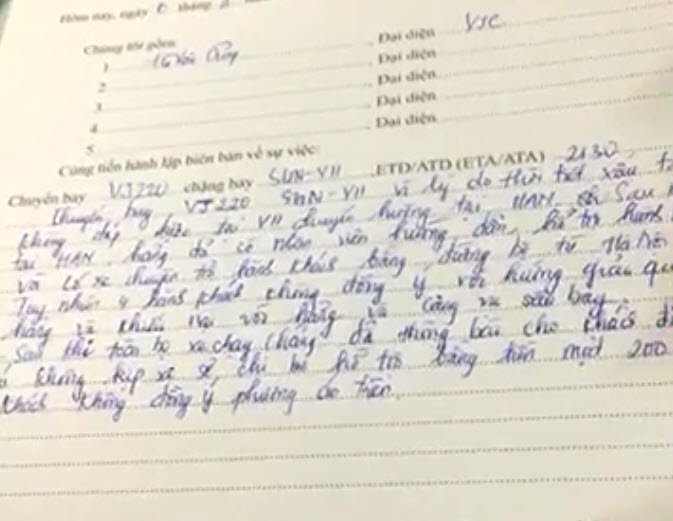 Hôm nay, ngày 6 tháng
Chúng tôi gồm:
1 Đại diện VSC
2 Đại diện
3 Đại diện
4 Đại diện
5 Đại diện
Cùng tiến hành lập biên bản về sự việc:
Chuyến bay VJ220 chặng bay SGN-VII ETD/ATD (ETA/ATA) 2130
Chuyến bay VJ220 SGN-VII vì lý do thời tiết xấu
không đáp được tại VII chuyển hướng tại HAN, sau
tại HAN, hãng đã có nhân viên hướng dẫn, hỗ trợ hành
và có xe chuyên trở hành khách bằng đường bộ từ Hà Nội
Tuy nhiên 4 hành khách không đồng ý với hướng giải qu
hãng và với hãng và cảng vụ sân bay.
Sau khi toàn bộ xe chạy (hãng đã thông báo cho khách
không kịp xe sẽ chỉ hỗ trợ bằng tiền mặt 200
khách không đồng ý phương án trên.